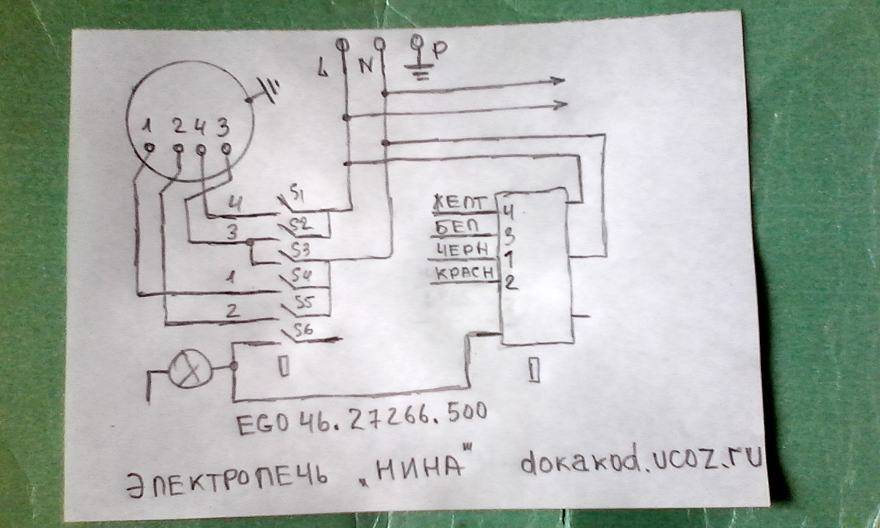 L N P
1 2 4 3
S1
4
S2
3
S3
1
S4
2
S5
S6
ЖЕЛТ 4
БЕЛ 3
ЧЕРН 1
КРАСН 2
EGO 46.27266.500
ЭЛЕКТРОПЕЧЬ „НИНА" dokakod.ucoz.ru